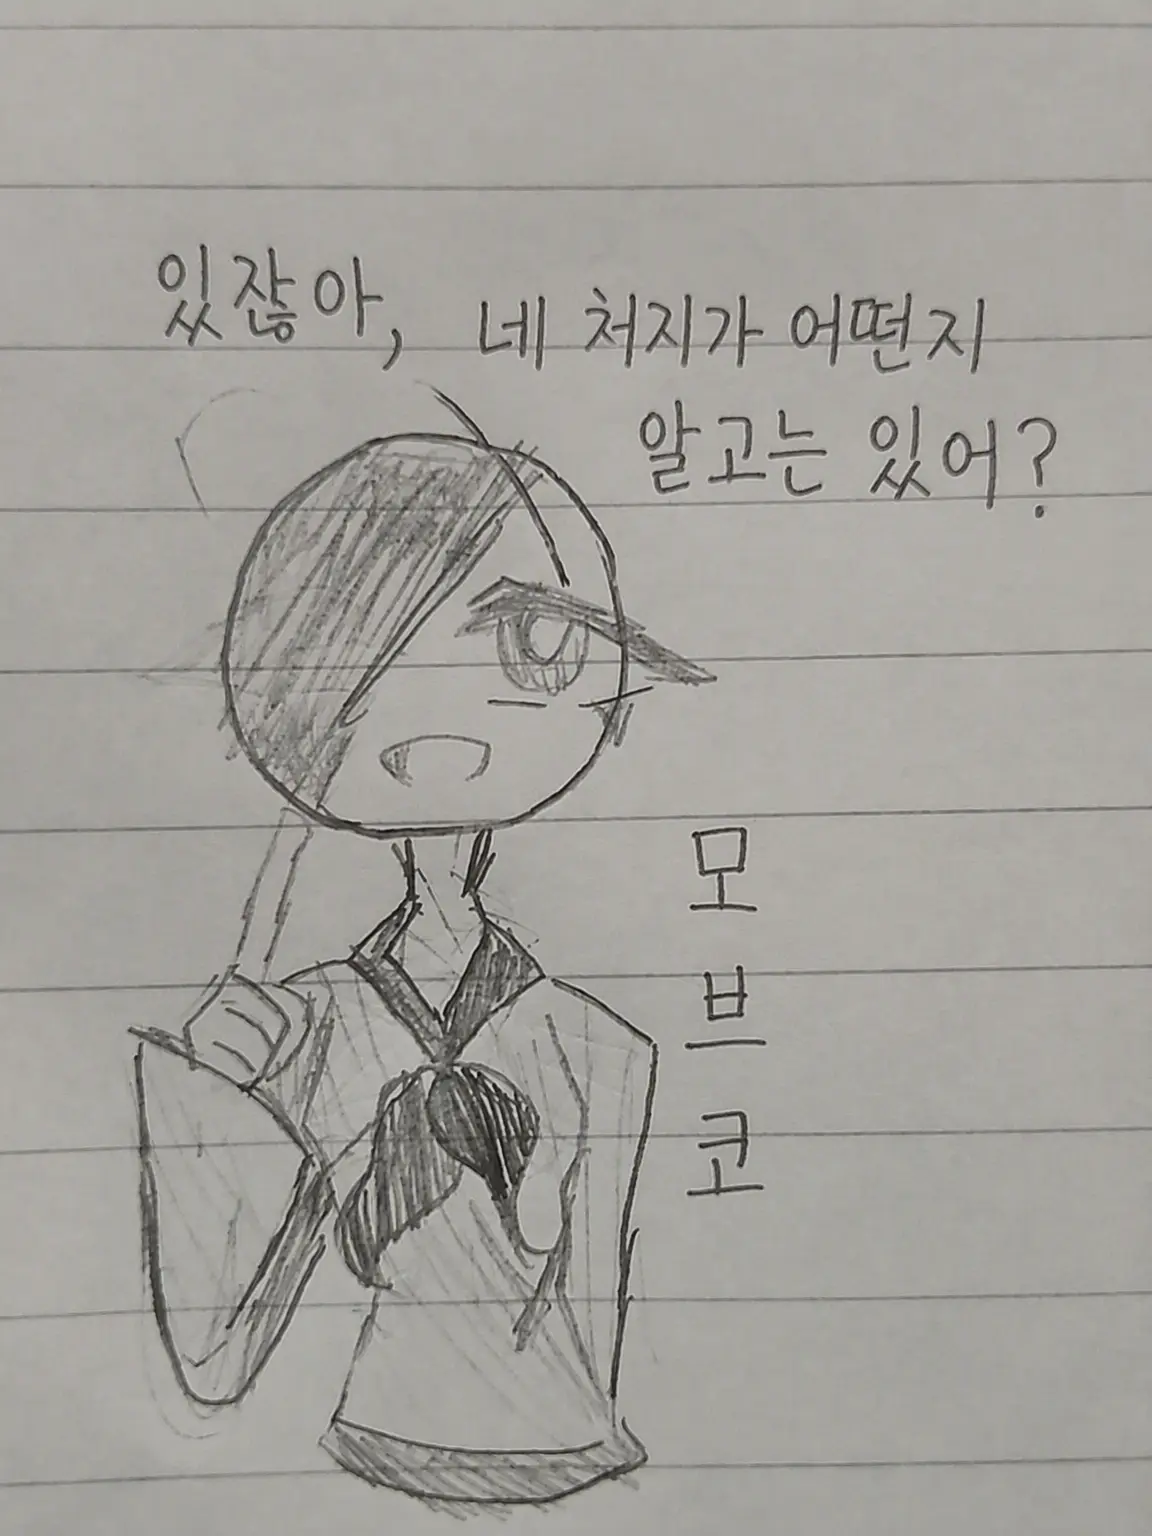 있잖아, 네 처지가 어떤지
알고는 있어?
모
브
코